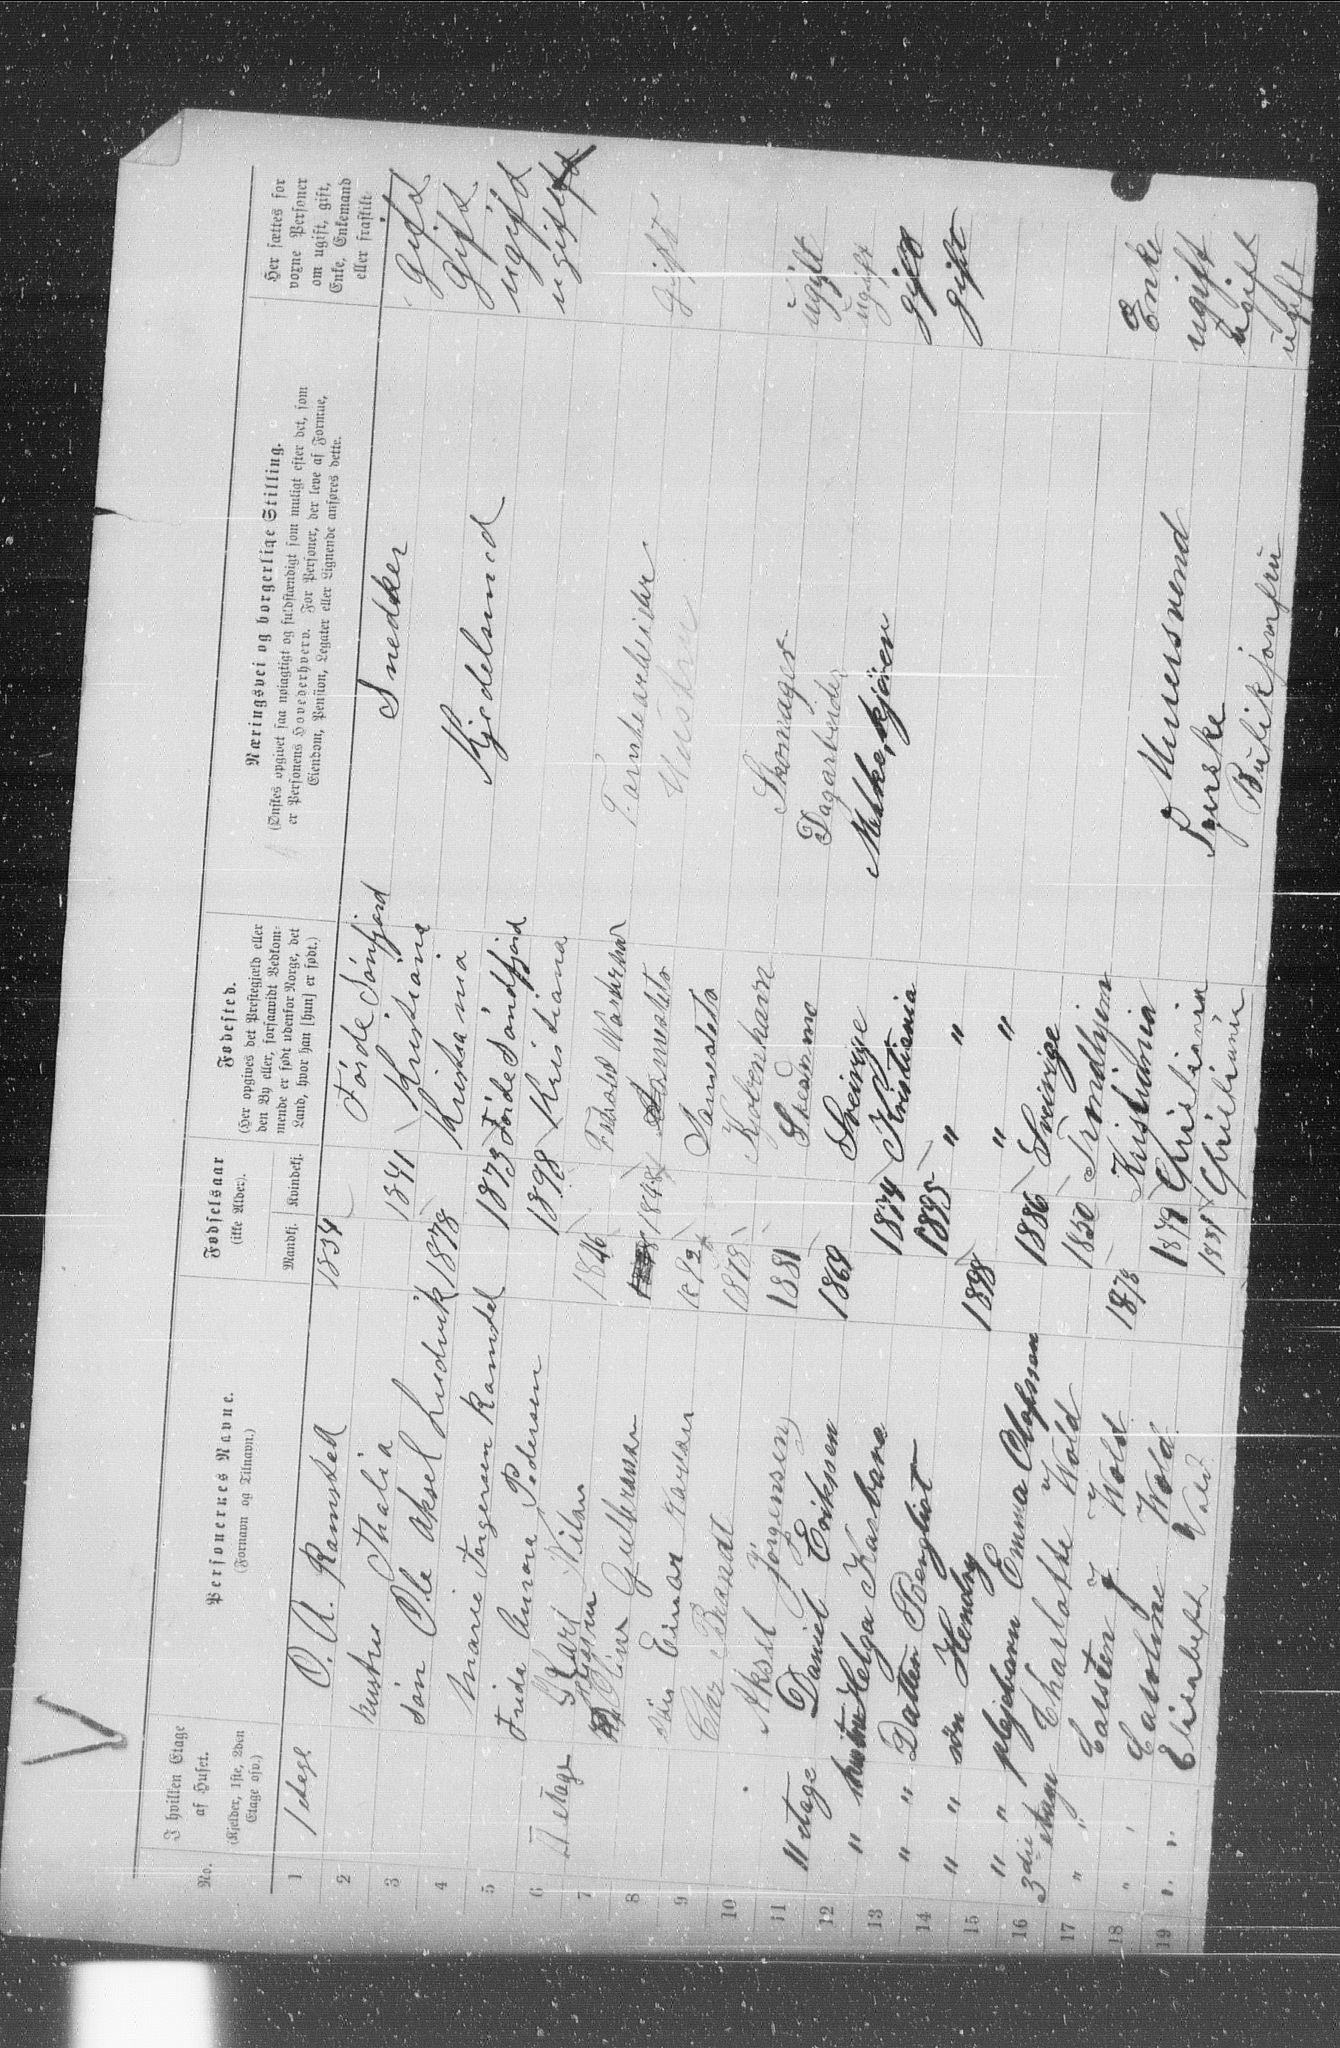 No.
I hvilken Etage
af Huset.
(Kjelder, 1ste, 2den
Etage osv.)
Personernes Navne.
(Fornavn og Tilnavn.)
Fødselsaar
(ikke Alder).
Mandkj. Kvindekj.
Fødested.
(Her opgives det Prestegjeld eller
den By eller, forsaavidt Vedkom-
mende er født udenfor Norge, det
Land, hvor han [hun] er født.)
Næringsvei og borgerlige Stilling.
(Ønskes opgivet saa nøiagtigt og fuldstændigt som muligt efter det, som
er Personens Hovederhverv. For Personer, der leve af Formue,
Eiendom, Pension, Legater eller Lignende anføres dette.
Her sættes for
voxne Personer
om ugift, gift,
Enke, Enkemand
eller fraskilt
1 1 etage O. A. Ramstad 1834 Förde Söndfjord Snedker Gift
2 hustru Thalia 1841 Kristiania Gift
3 Sön Ole Aksel Ludvik 1878 Kristiania Kjedelsmed ugift
4 Marie Torgersen Ramstad 1873 Förde Söndfjord ugift
5 Frida Aurora Pedersen 1898 Kristiania
6 II etage Karl Nilsen 1846 Fabrikarbeider Gift
7 Oline Gulbransen 1848 Hustru
8 Einar Karlsen Sammesteds
9 Chr Brandt 1878 Kobenhavn Skomager ugift
10 Aksel Jörgensen 1881 Skedsmo Dagarbeider ugift
11 11 etage Daniel Eriksen 1869 Sveirige Melkekjører gift
12 " hustru Helga Kasbara 1874 Kristiania gift
13 " " Datter Bergliot 1895 " "
14 " " sön Hendry 1898 " "
15 " " plejebarn Emma Olafsson 1886 Sveirige
16 3die etage Charlotte Wold 1850 Trondhjem Enke
17 " " Carsten J Wold 1878 Kristiania Murersvend ugift
18 " " Caroline J Wold 1879 Christiania Syerske ugift
19 " " Elisabeth Wold 1881 Christiania Butikjomfru ugift